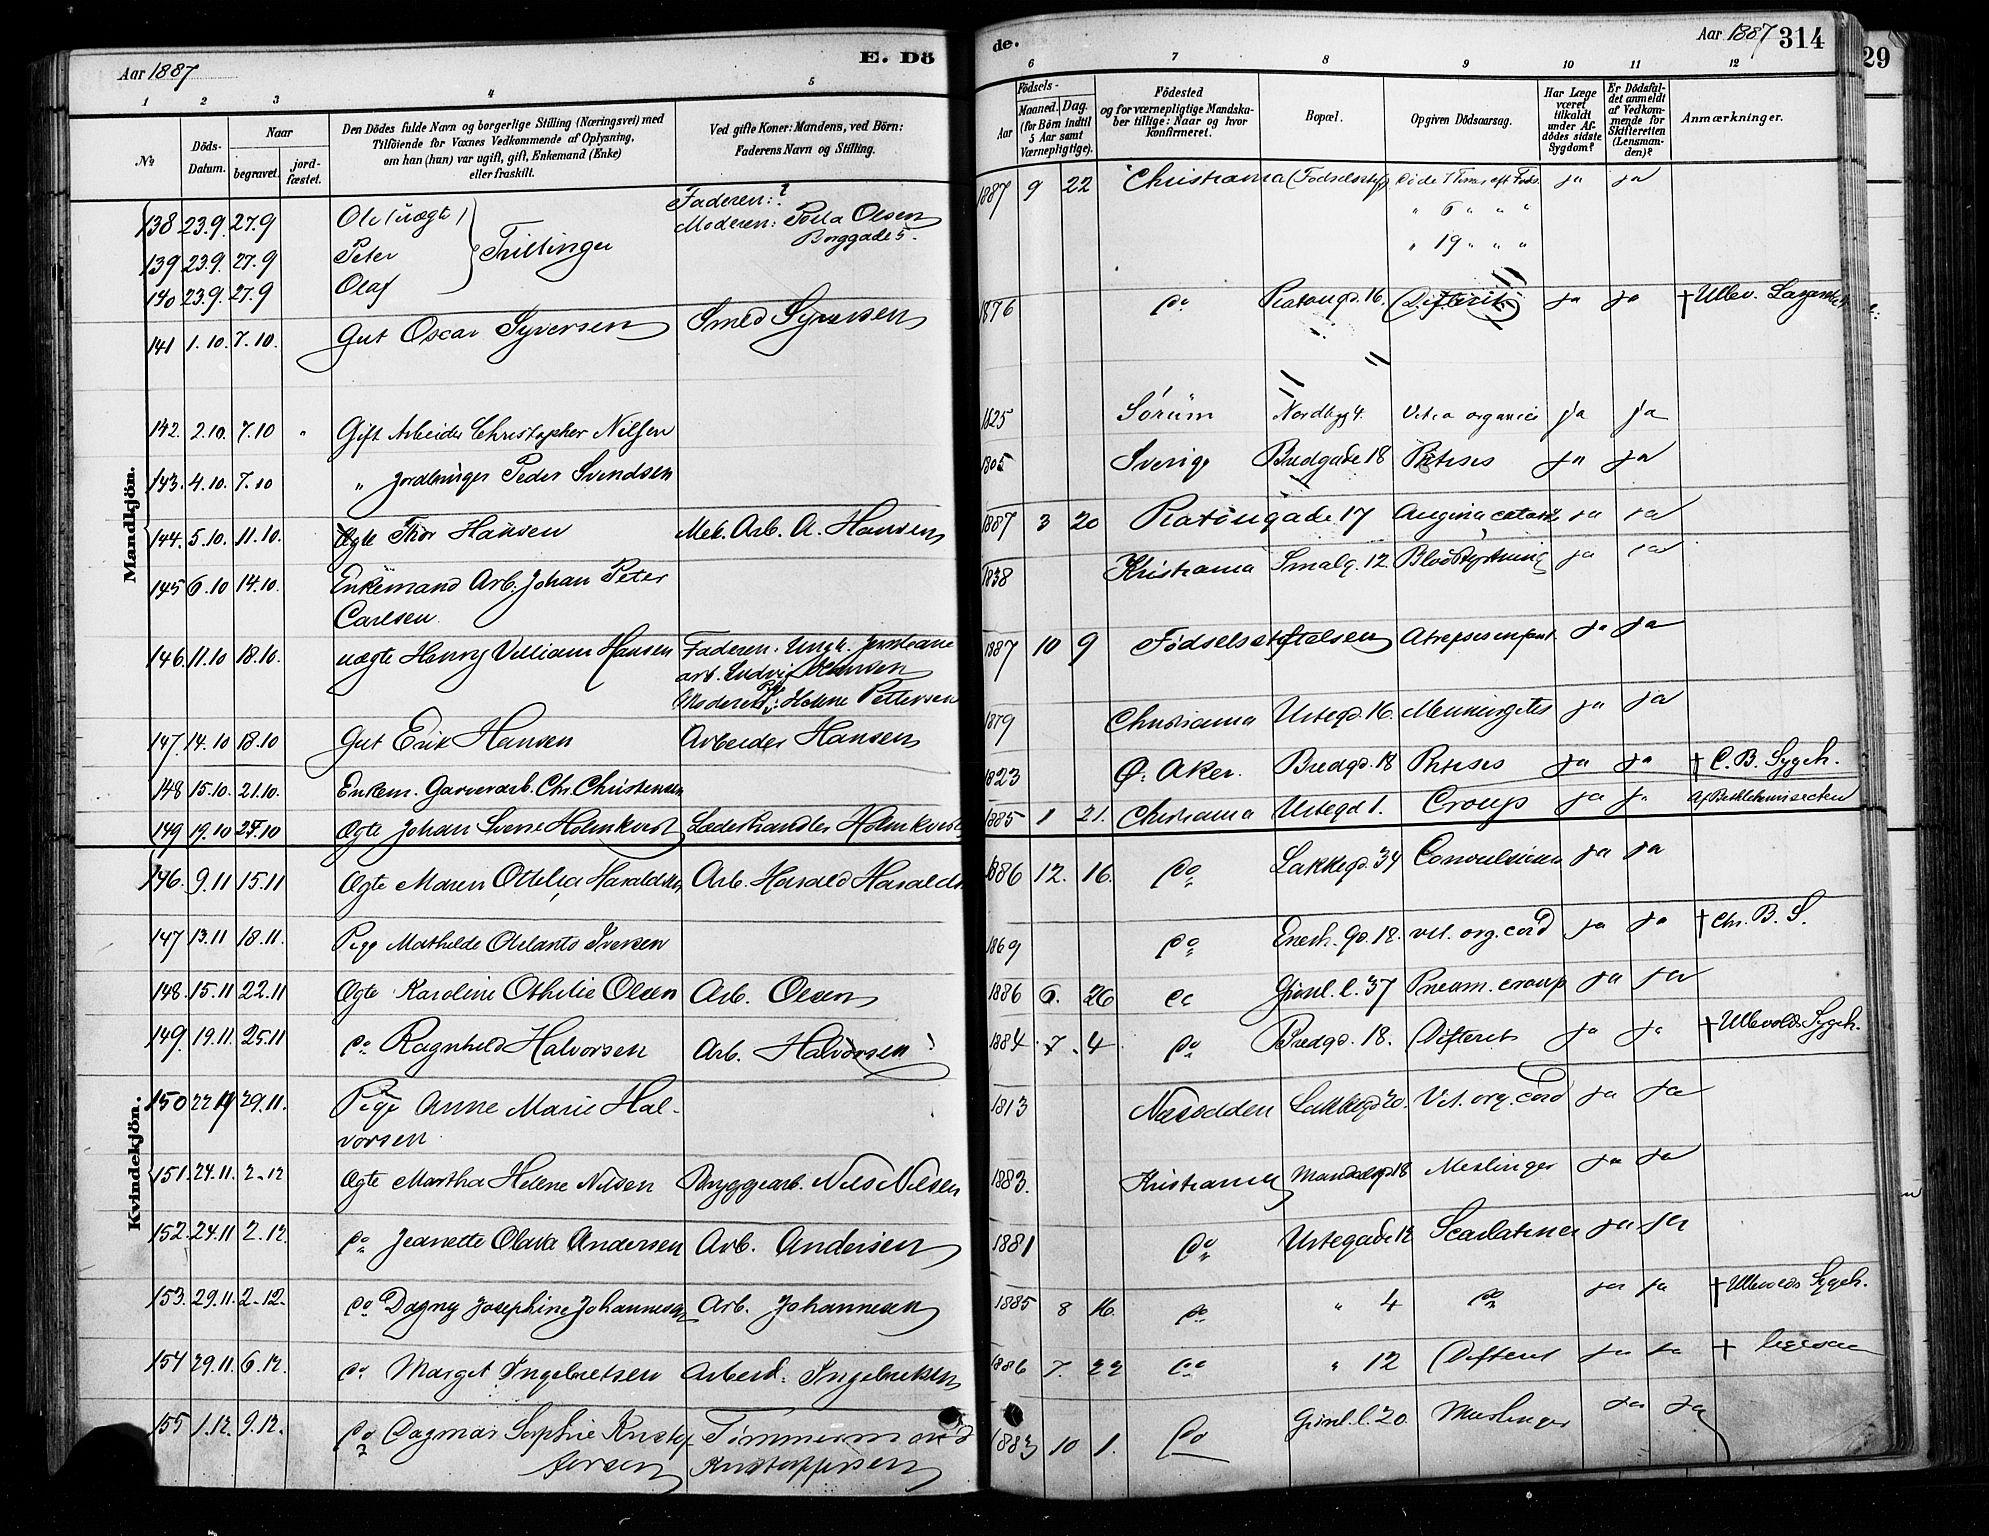 Aar 1887
E. Dö
de.
Aar 1887
314
29
1 2 3 4 5 6 7 8 9 10 11 12
№
Döds-Datum.
Naar
begravet.
jord-fæstet.
Den Dödes fulde Navn og borgerlige Stilling (Næringsvei) med
Tilföiende for Voxnes Vedkommende af Oplysning,
om han (hun) var ugift, gift, Enkemand (Enke)
eller fraskilt.
Ved gifte Koner: Mandens, ved Börn:
Faderens Navn og Stilling.
Födsels-
Aar
Maaned. Dag.
(for Börn indtil
5 Aar samt
Værnepligtige).
Födested
og for værnepligtige Mandska-
ber tillige: Naar og hvor
konfirmeret.
Bopæl.
Opgiven Dödsaarsag.
Har Læge
været
tilkaldt
under Af-
dödes sidste
Sygdom?
Er Dödsfal-
det anmeldt
af Vedkom-
mende for
Skifteretten
(Lensman-
den)?
Anmærkninger.
Mandkjön.
138 23.9. 27.9 Ole (uægte) Trillinger Faderen: ? Moderen: Olsen Borggade 5. 1887 9 22 Christiania ja ja
139 23.9. 27.9 Peter " 6 " " "
140 23.9. 27.9 Olaf " 19 " " "
141 1.10. 7.10. Gut Oscar Syversen Smed Syversen 1876 do 16. Difterit ja ja † Ullev.
142. 2.10. 7.10 " Gift Arbeider Christopher Nilsen 1825 Sörum Nordbyg 4. organici ja ja
143. 4.10. 7.10 " Peder Svendsen 1805 Sverige Bredgade 18 Ptisis ja ja
144. 5.10. 11.10. Ægte Thor Hansen Mek. Arb. A. Hansen 1887 3 20 Platöugade 17 Angina ja ja
145 6.10 14.10. Enkemand Arb. Johan Peter
Carlsen. 1838 Kristiania Smalg. 12 Blodstyrtning ja ja
146. 11.10 18.10. uægte Henry Villiam Hansen Faderen: Ungk.
arb. Ludvig Hansen
Moderen: Pige Helene Pettersen 1887 10 9 Födselsstiftelsen ja ja
147. 14.10 18.10 Gut Erik Hansen Arbeider Hansen 1879 Christiania Urtegd. 16. ja ja
148 15.10. 21.10. Enkem. Garverarb. Chr. Christensen 1823 Ö. Aker. Bredgd. 18 Ptisis ja ja † C. B. Sygeh.
149 19.10 25.10 Ægte Johan Sverre Holmkvist Læderhandler Holmkvist 1885 1 21. Christiania Urtegd 1. Croup ja ja
Kvindekjön.
146. 9.11 15.11 Ægte Maren Ottelia Haraldsen Arb. Harald 1886 12. 16. do Lakkegd. 34 ja ja
147 13.11 18.11. Pige Mathilde Iversen 1869 do 12. vit. org. cord ja ja † Chr. B. S.
148. 15.11 22.11 Ægte Karoline Othilie Olsen Arb. Olsen 1886 6. 26 do Grönl. l. 37 Pneum. croup ja ja
149. 19.11 25.11 do Ragnhild Halvorsen Arb. Halvorsen 1884 7. 4 do Bredgd. 18. Difterit ja ja † Ullevolds Sygeh.
150 22.11 29.11. Pige Anne Marie Hal-
vorsen 1813 Næsodden Lakkegd 20. Vit. org. cord ja ja
151. 24.11. 2.12 Ægte Martha Helene Nilsen Bryggearb. Nils Nilsen 1883. Kristiania 18 Meslinger ja ja
152. 24.11. 2.12. do Jeanette Olava Andersen Arb. Andersen 1881 do Urtegade 12 Scarlatina ja ja
153. 29.11. 2.12. do Dagny Josephine Johannesen Arb. Johannesen 1885 8 16. do " 4 do ja ja † Ullevolds Sygeh.
154 29.11. 6.12. do Margit Ingebretsen Arbeid. Ingebretsen 1886 7. 22 do " 12 Difterit ja ja †
155 1.12. 9.12. do Dagmar Sophie Kristof-
fersen Tömmermand
Kristoffersen 1883 10 1. do Grönl. l. 20 Meslinger ja ja